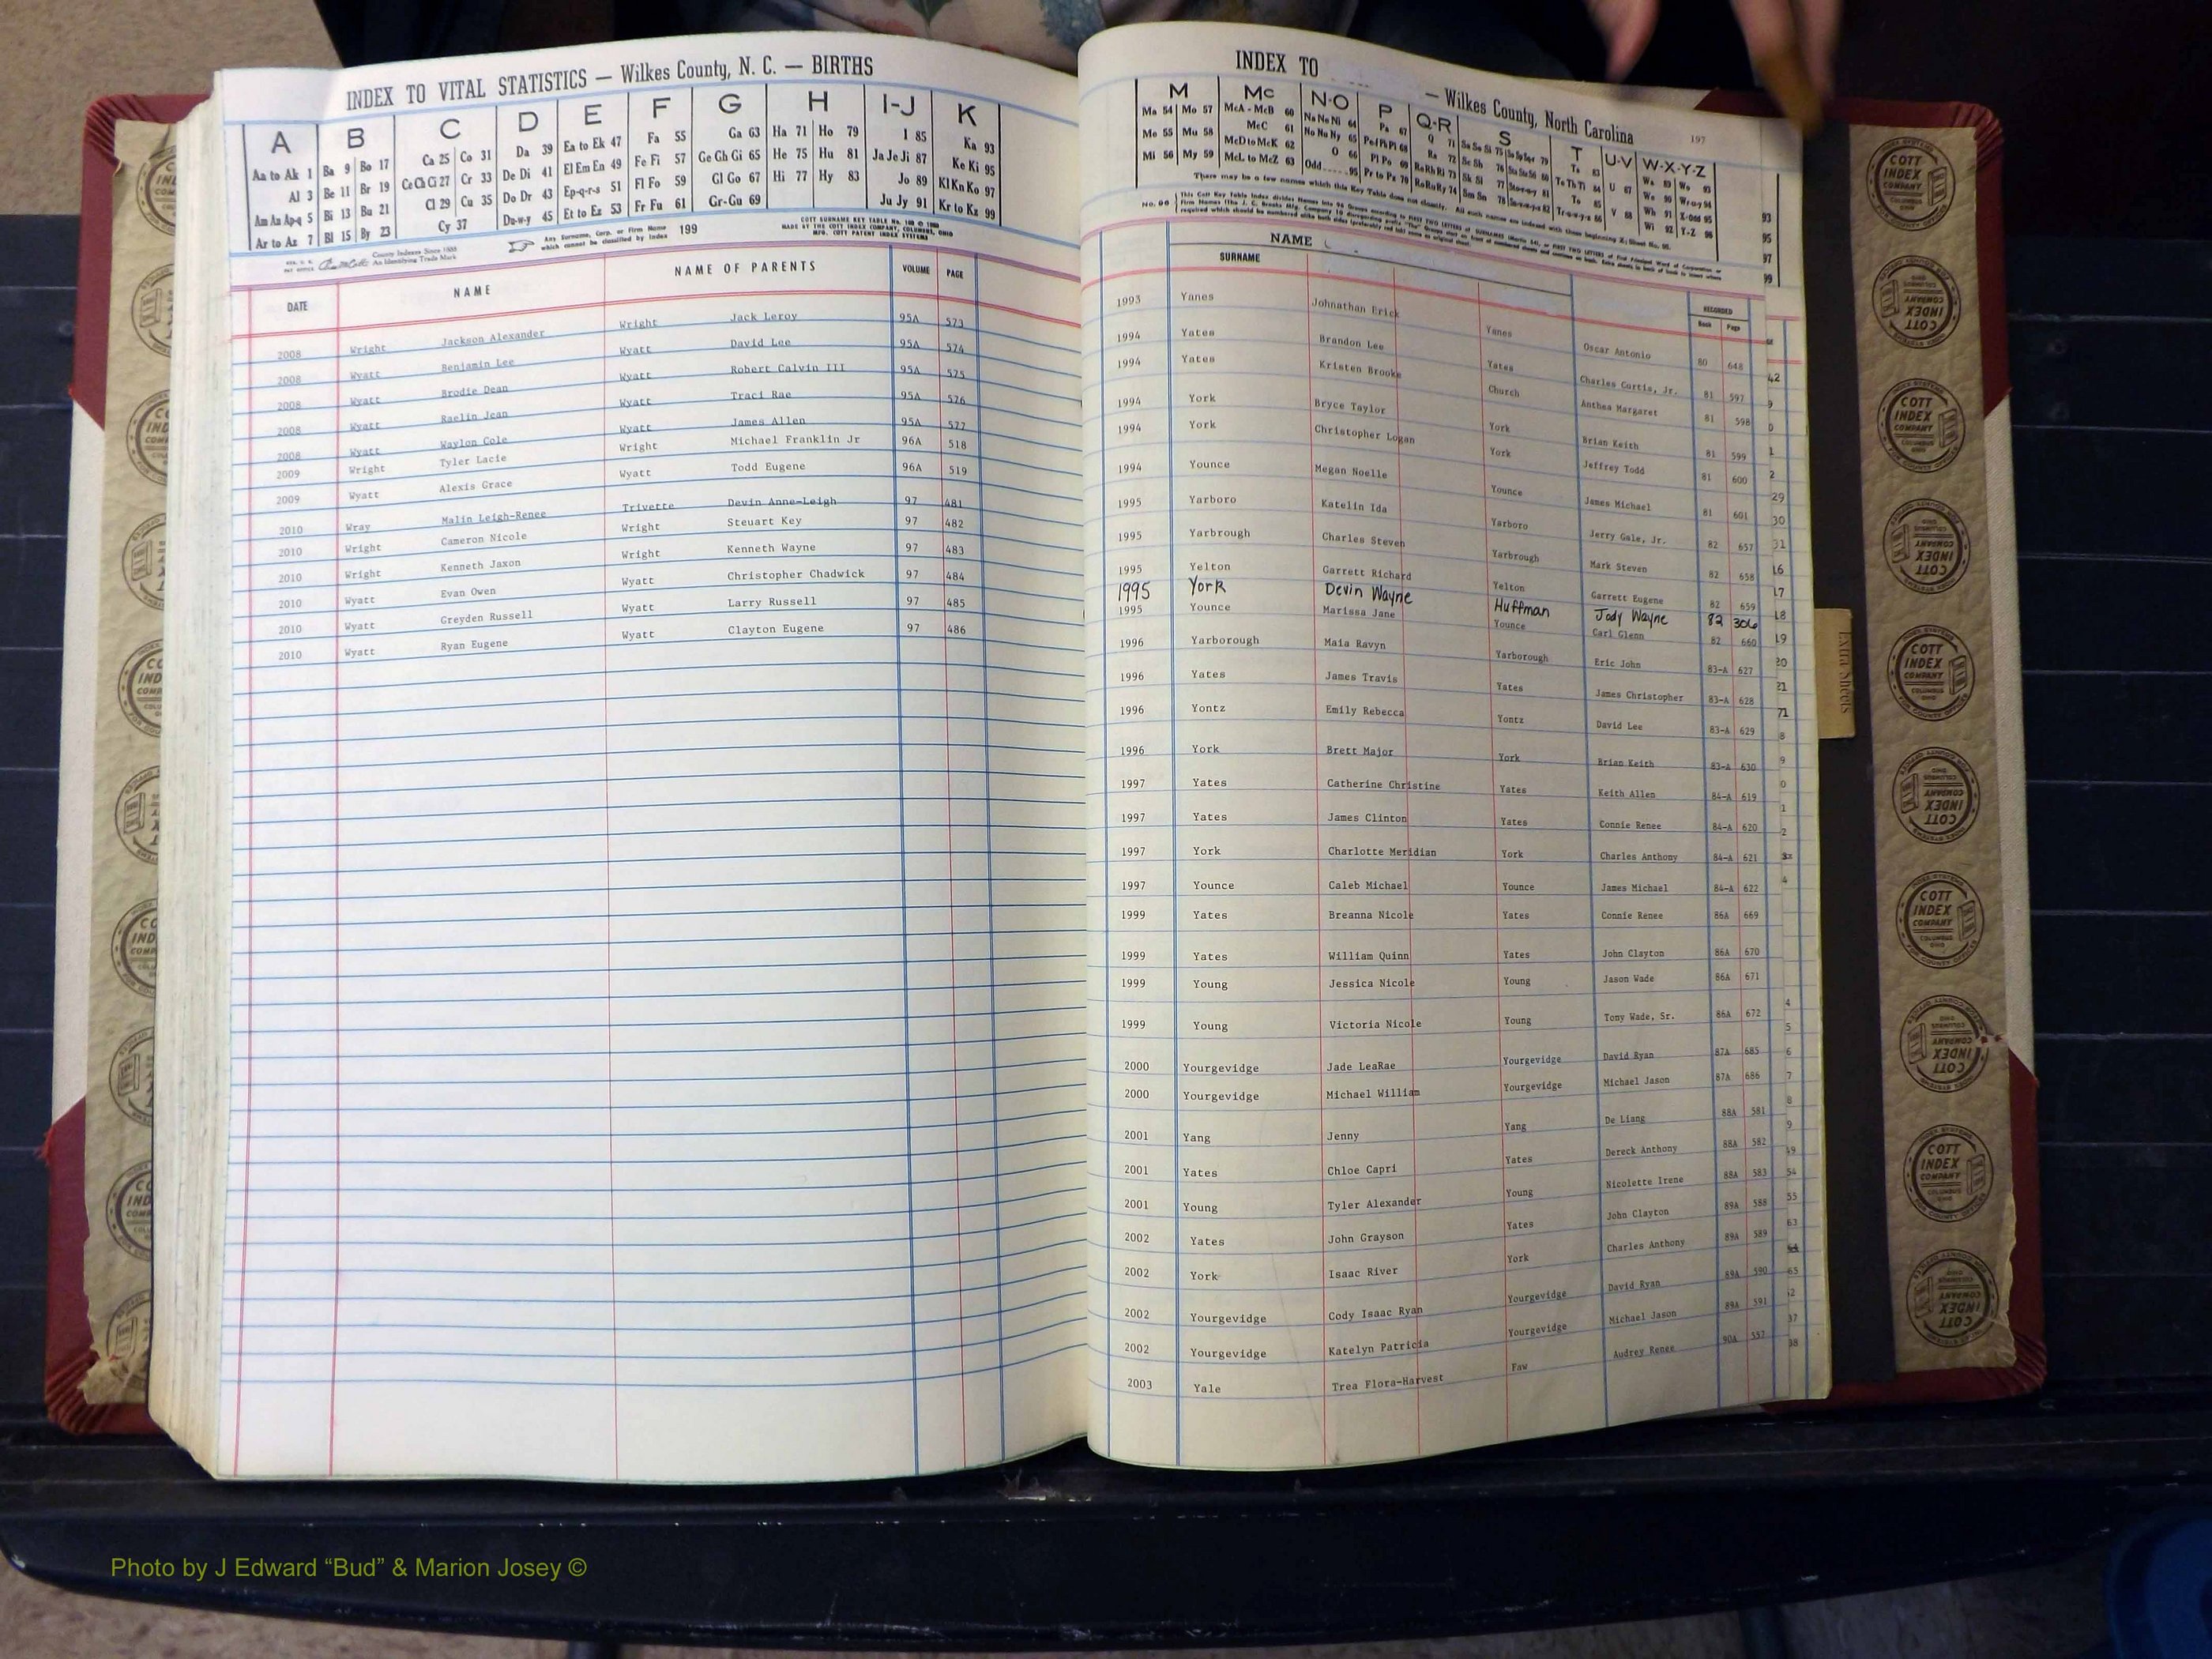 INDEX TO VITAL STATISTICS — Wilkes County, N. C. — BIRTHS
A B C D E F G H I-J K
Aa to Ak 1 Ba 9 Bo 17 Ca 25 Co 31 Da 39 Ea to Ek 47 Fa 55 Ga 63 Ha 71 Ho 79 I 85 Ka 93
Al 3 Be 11 Br 19 Ce Ch Ci 27 Cr 33 De Di 41 El Em En 49 Fe Fi 57 Ge Gh Gi 65 He 75 Hu 81 Ja Je Ji 87 Ke Ki 95
Am An Ap-q 5 Bi 13 Bu 21 Cl 29 Cu 35 Do Dr 43 Ep-q-r-s 51 Fl Fo 59 Gl Go 67 Hi 77 Hy 83 Jo 89 Kl Kn Ko 97
Ar to Az 7 Bl 15 By 23 Cy 37 Du-w-y 45 Et to Ez 53 Fr Fu 61 Gr-Gu 69 Ju Jy 91 Kr to Kz 99
County Indexes Since 1888
An Identifying Trade Mark
Any Surname, Corp. or Firm Name
which cannot be classified by Index 199
MADE BY THE COTT INDEX COMPANY, COLUMBUS, OHIO
MFG. COTT PATENT INDEX SYSTEMS
DATE NAME NAME OF PARENTS VOLUME PAGE
2008 Wright Jackson Alexander Wright Jack Leroy 95A 573
2008 Wyatt Benjamin Lee Wyatt David Lee 95A 574
2008 Wyatt Brodie Dean Wyatt Robert Calvin III 95A 575
2008 Wyatt Raelin Jean Wyatt Traci Rae 95A 576
2008 Wyatt Waylon Cole Wyatt James Allen 95A 577
2009 Wright Tyler Lacie Wright Michael Franklin Jr 96A 518
2009 Wyatt Alexis Grace Wyatt Todd Eugene 96A 519
2010 Wray Malin Leigh-Renee Trivette Devin Anne-Leigh 97 481
2010 Wright Cameron Nicole Wright Steuart Key 97 482
2010 Wright Kenneth Jaxon Wright Kenneth Wayne 97 483
2010 Wyatt Evan Owen Wyatt Christopher Chadwick 97 484
2010 Wyatt Greyden Russell Wyatt Larry Russell 97 485
2010 Wyatt Ryan Eugene Wyatt Clayton Eugene 97 486
INDEX TO — Wilkes County, North Carolina 197
M Mc N-O P Q-R S T U-V W-X-Y-Z
Ma 54 Mo 57 McA - McB 60 Na Ne Ni 64 Pa 67 Q 71
Me 55 Mu 58 McC 61 No Nu Ny 65 Ra 72
Mi 56 My 59 McD to McK 62 O 66
McL to McZ 63
There may be a few names which this Key Table does not classify.
NAME
SURNAME
RECORDED
Book Page
1993 Yanes Johnathan Erick Yanes Oscar Antonio 80 648
1994 Yates Brandon Lee Yates Charles Curtis, Jr. 81 597
1994 Yates Kristen Brooke Church Anthea Margaret 81 598
1994 York Bryce Taylor York Brian Keith 81 599
1994 York Christopher Logan York Jeffrey Todd 81 600
1994 Younce Megan Noelle Younce James Michael 81 601
1995 Yarboro Katelin Ida Yarboro Jerry Gale, Jr. 82 657
1995 Yarbrough Charles Steven Yarbrough Mark Steven 82 658
1995 Yelton Garrett Richard Yelton Garrett Eugene 82 659
1995 York Devin Wayne Huffman Jody Wayne 82 306
1995 Younce Marissa Jane Younce Carl Glenn 82 660
1996 Yarborough Maia Ravyn Yarborough Eric John 83-A 627
1996 Yates James Travis Yates James Christopher 83-A 628
1996 Yontz Emily Rebecca Yontz David Lee 83-A 629
1996 York Brett Major York Brian Keith 83-A 630
1997 Yates Catherine Christine Yates Keith Allen 84-A 619
1997 Yates James Clinton Yates Connie Renee 84-A 620
1997 York Charlotte Meridian York Charles Anthony 84-A 621
1997 Younce Caleb Michael Younce James Michael 84-A 622
1999 Yates Breanna Nicole Yates Connie Renee 86A 669
1999 Yates William Quinn Yates John Clayton 86A 670
1999 Young Jessica Nicole Young Jason Wade 86A 671
1999 Young Victoria Nicole Young Tony Wade, Sr. 86A 672
2000 Yourgevidge Jade LeaRae Yourgevidge David Ryan 87A 685
2000 Yourgevidge Michael William Yourgevidge Michael Jason 87A 686
2001 Yang Jenny Yang De Liang 88A 581
2001 Yates Chloe Capri Yates Dereck Anthony 88A 582
2001 Young Tyler Alexander Young Nicolette Irene 88A 583
2002 Yates John Grayson Yates John Clayton 89A 588
2002 York Isaac River York Charles Anthony 89A 589
2002 Yourgevidge Cody Isaac Ryan Yourgevidge David Ryan 89A 590
2002 Yourgevidge Katelyn Patricia Yourgevidge Michael Jason 89A 591
2003 Yale Trea Flora-Harvest Faw Audrey Renee 90A 557
Extra Sheets
COTT INDEX COMPANY COLUMBUS OHIO
Photo by J Edward “Bud” & Marion Josey ©